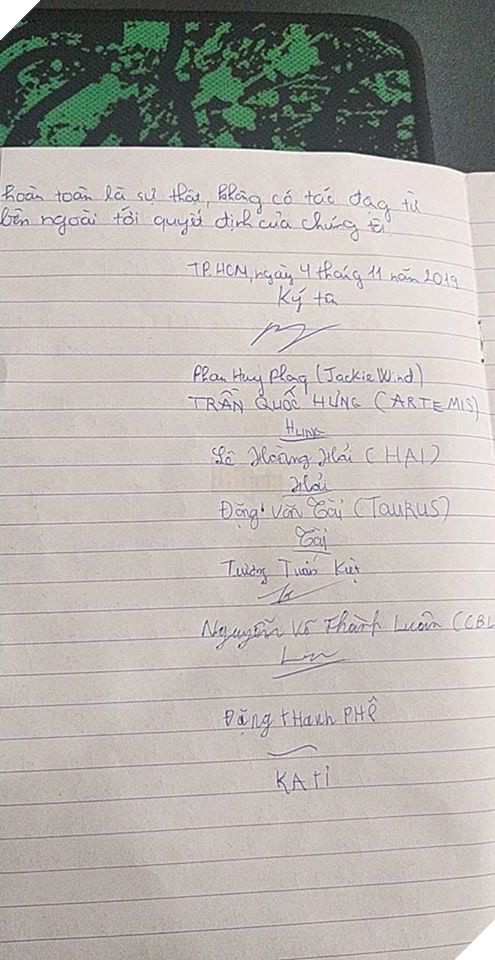 hoàn toàn là sự thật, không có tác động từ
bên ngoài tới quyết định của chúng tôi
TP.HCM, ngày 4 tháng 11 năm 2019
Ký tên
Phan Huy Phag (Jackie Wind)
TRẦN QUỐC HƯNG (ARTEMIS)
HUNG
Lê Hoàng Hải (HAI)
Hải
Đặng Văn Tài (TAURUS)
Tài
Tương Tuấn Kiệt
Nguyễn Võ Thành Luân (CBL
Đặng tHanh PHê
KATI